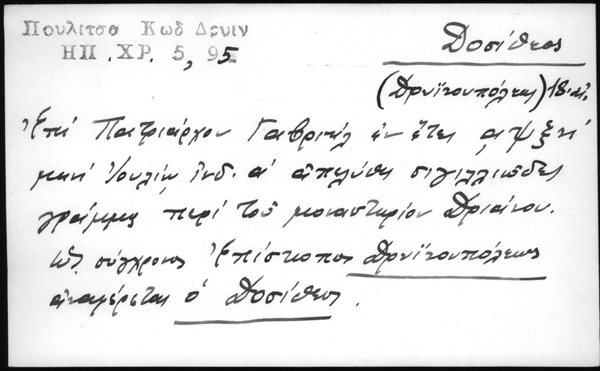 Πουλιτσα Κωδ Δρυιν
ΗΠ . ΧΡ. 5, 95
Δοσίθεος
(Δρυϊνουπόλεως) 18 αἰ.
Ἐπί Πατριάρχου Γαβριήλ ἐν ἔτει ͵αψξη΄
μηνί Ἰουλίῳ ἰνδ. α΄ ἀπελύθη σιγιλλιῶδες
γράμμα περί τοῦ μοναστηρίου Δρυάνου.
Ὡς σύγχρονος Ἐπίσκοπος Δρυϊνουπόλεως
ἀναφέρεται ὁ Δοσίθεος.